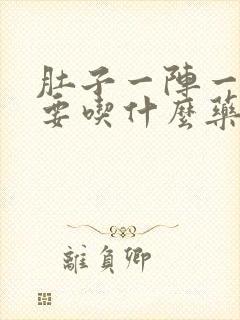 肚子一陣一
要喫什麼藥
離負卿